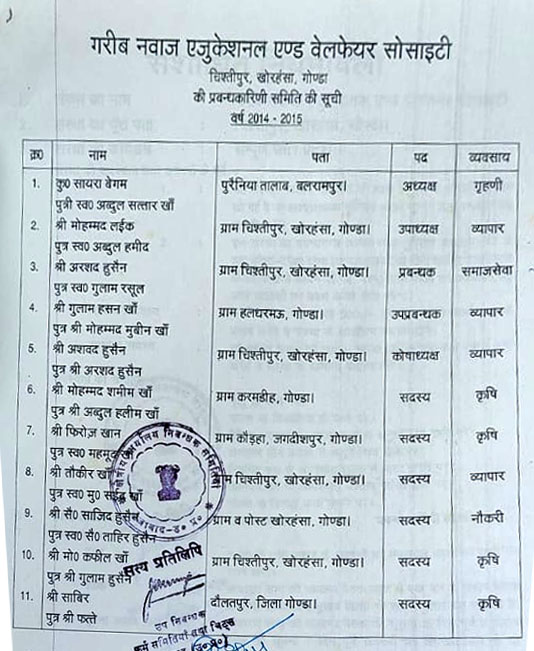 गरीब नवाज एजुकेशनल एण्ड वेलफेयर सोसाइटी
चिश्तीपुर, खोरहंसा, गोण्डा
की प्रबन्धकारिणी समिति की सूची
वर्ष 2014 - 2015
क्र0 नाम पता पद व्यवसाय
1. कु0 सायरा बेगम पुरैनिया तालाब, बलरामपुर। अध्यक्ष गृहणी
पुत्री स्व0 अब्दुल सत्तार खाँ
2. श्री मोहम्मद लईक ग्राम चिश्तीपुर, खोरहंसा, गोण्डा। उपाध्यक्ष व्यापार
पुत्र स्व0 अब्दुल हमीद
3. श्री अरशद हुसैन ग्राम चिश्तीपुर, खोरहंसा, गोण्डा। प्रबन्धक समाजसेवा
पुत्र स्व0 गुलाम रसूल
4. श्री गुलाम हसन खाँ ग्राम हलधरमऊ, गोण्डा। उपप्रबन्धक व्यापार
पुत्र श्री मोहम्मद मुबीन खाँ
5. श्री अशवद हुसैन ग्राम चिश्तीपुर, खोरहंसा, गोण्डा। कोषाध्यक्ष व्यापार
पुत्र श्री अरशद हुसैन
6. श्री मोहम्मद शमीम खाँ ग्राम करमडीह, गोण्डा। सदस्य कृषि
पुत्र श्री अब्दुल हलीम खाँ
7. श्री फिरोज़ खान ग्राम कौड़हा, जगदीशपुर, गोण्डा। सदस्य कृषि
पुत्र स्व0 महमूद
8. श्री तौकीर खाँ ग्राम चिश्तीपुर, खोरहंसा, गोण्डा। सदस्य व्यापार
पुत्र स्व0 मु0 सईद खाँ
9. श्री सै0 साजिद हुसैन ग्राम व पोस्ट खोरहंसा, गोण्डा। सदस्य नौकरी
पुत्र स्व0 सै0 ताहिर हुसैन
10. श्री मो0 कफील खाँ ग्राम चिश्तीपुर, खोरहंसा, गोण्डा। सदस्य कृषि
पुत्र श्री गुलाम हुसैन
11. श्री साबिर दौलतपुर, जिला गोण्डा। सदस्य कृषि
पुत्र श्री फत्ते
सत्य प्रतिलिपि
उप निबन्धक